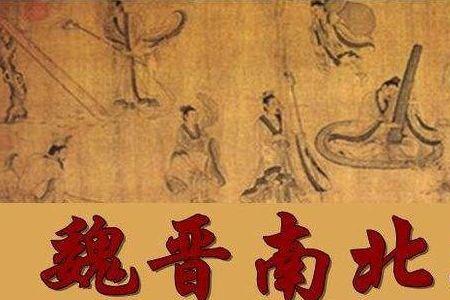 魏晋南北